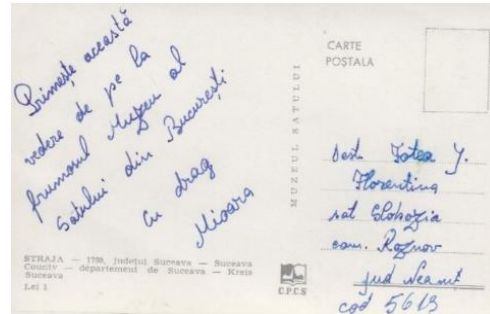 Primește această
vedere de pe la
frumosul Muzeu al
Satului din București
cu drag
Mioara
STRAJA — 1799, Județul Suceava — Suceava
County — département de Suceava — Kreis
Suceava
Lei 1
MUZEUL SATULUI
C.P.C.S
CARTE
POȘTALĂ
Dest. Totea J.
Florentina
sat Slobozia
com. Roznov
jud Neamț
cod 5613